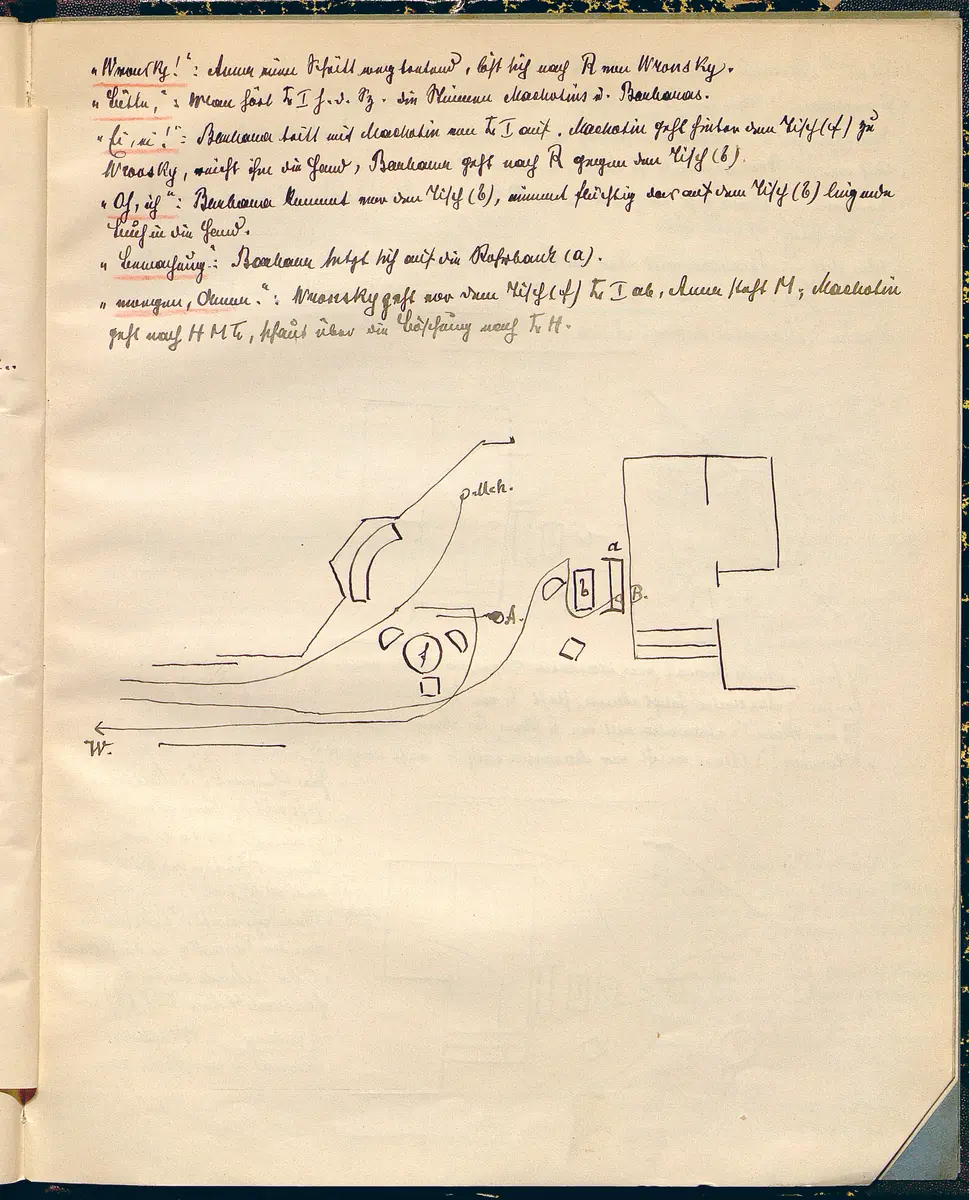 „Wronsky!“: Anna einen Schritt wegtretend, löst sich nach R von Wronsky.
„Bitte,“: Man hört Tr I h. d. Sz. die Stimmen Machotins u. Barbaras.
„Ei, ei!“: Barbara tritt mit Machotin von Tr I auf. Machotin geht hinter dem Tisch (f) zu
Wronsky, reicht ihm die Hand, Barbara geht nach R gegen den Tisch (b).
„Oh, ich“: Barbara kommt vor den Tisch (b), nimmt flüchtig das auf dem Tisch (b) liegende
Buch in die Hand.
„Bewachung“: Barbara setzt sich auf die Rohrbank (a).
„morgen, Anna.“: Wronsky geht vor dem Tisch (f) Tr I ab, Anna steht M; Machotin
geht nach H M Tr, schaut über die Böschung nach Tr H.
Mch.
a
b
B.
A.
f
W.